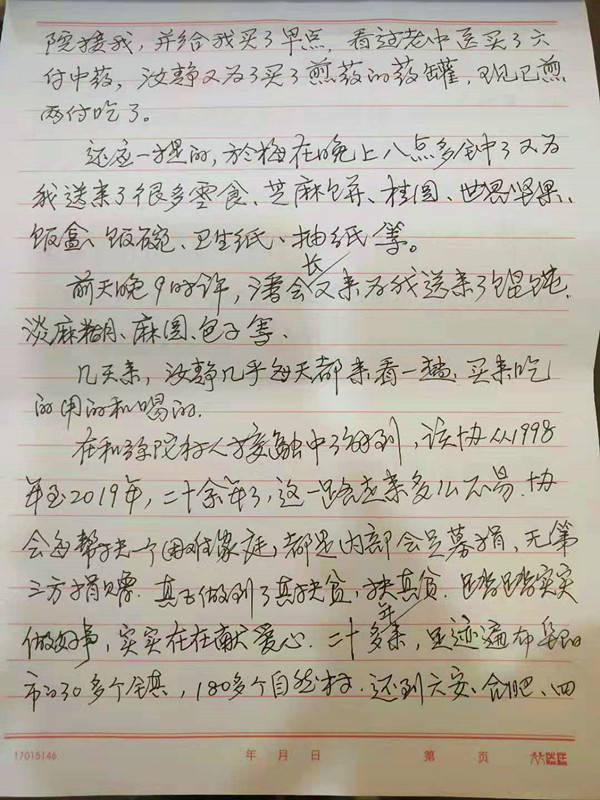 院接我，并给我买了早点，看过老中医买了六
付中药，汝静又为了买了煎药的药罐，现已煎
两付吃了。
还应一提的，於梅在晚上八点多钟了又为
我送来了很多零食、芝麻饼、桂圆、世界坚果、
饭盒、饭碗、卫生纸、抽纸等。
前天晚9时许，潘会长又来为我送来了馄饨、
淡麻糊、麻圆、包子等、
几天来，汝静几乎每天都来看一趟，买来吃
的用的和喝的.
在和弥陀村人接触中了解到，该协从1998
年至2019年，二十余年了，这一路走来多么不易.协
会每帮扶一个困难家庭，都是内部会员募捐，无第
三方捐赠.真正做到了真扶贫，扶真贫.踏踏实实
做好事，实实在在献爱心.二十多年来，足迹遍布
市的30多个镇，180多个自然村.还到六安、合肥、四
17015146 年 月 日 第 页